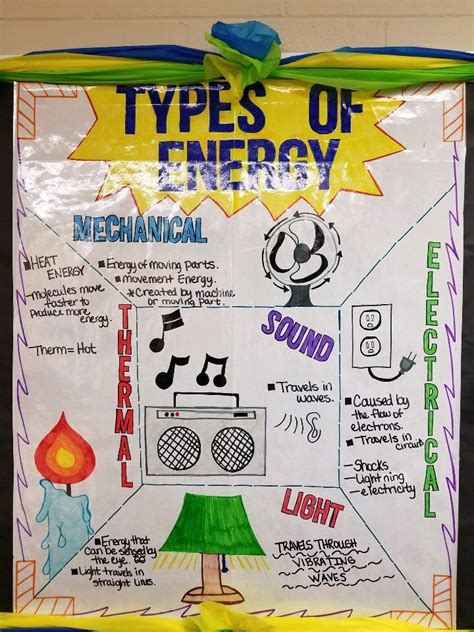 TYPES OF
ENERGY
MECHANICAL
■Energy of moving parts.
■Movement Energy.
*Created by machine
or moving part.
■HEAT
ENERGY
-molecules move
faster to
produce more
energy.
Therm= Hot
THERMAL
SOUND
■Travels in
waves.
ELECTRICAL
■Caused by
the flow of
electrons.
■Travels in
circuit
-Shocks
-Lightning
-electricity
LIGHT
■Energy that
can be sensed by
the eye.
■Light travels in
straight lines.
TRAVELS THROUGH
VIBRATING
WAVES